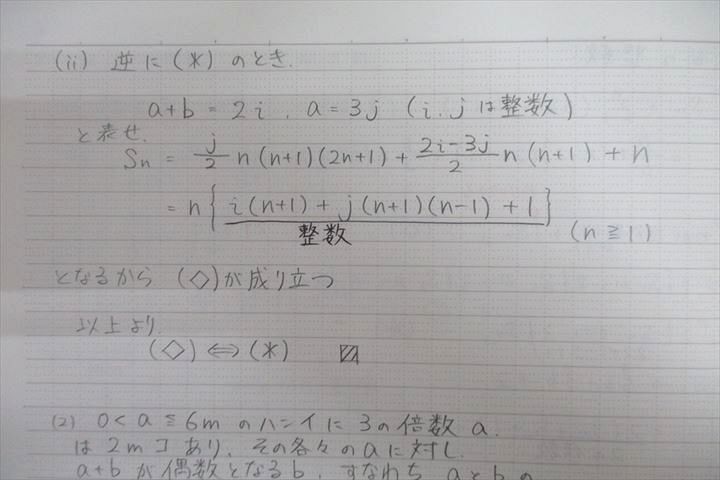 (ii) 逆に(*)のとき.
a+b = 2i, a = 3j (i, jは整数)
と表せ.
Sn = j/2 n(n+1)(2n+1) + 2i-3j/2 n(n+1) + n
= n{ i(n+1) + j(n+1)(n-1) + 1}
整数
(n≧1)
となるから (◇)が成り立つ
以上より.
(◇) ⇔ (*) ▨
(2) 0<a≦6m のハンイに 3の倍数 a.
は 2mコ あり, その各々の a に対し.
a+b が偶数となる b, すなわち aとbの